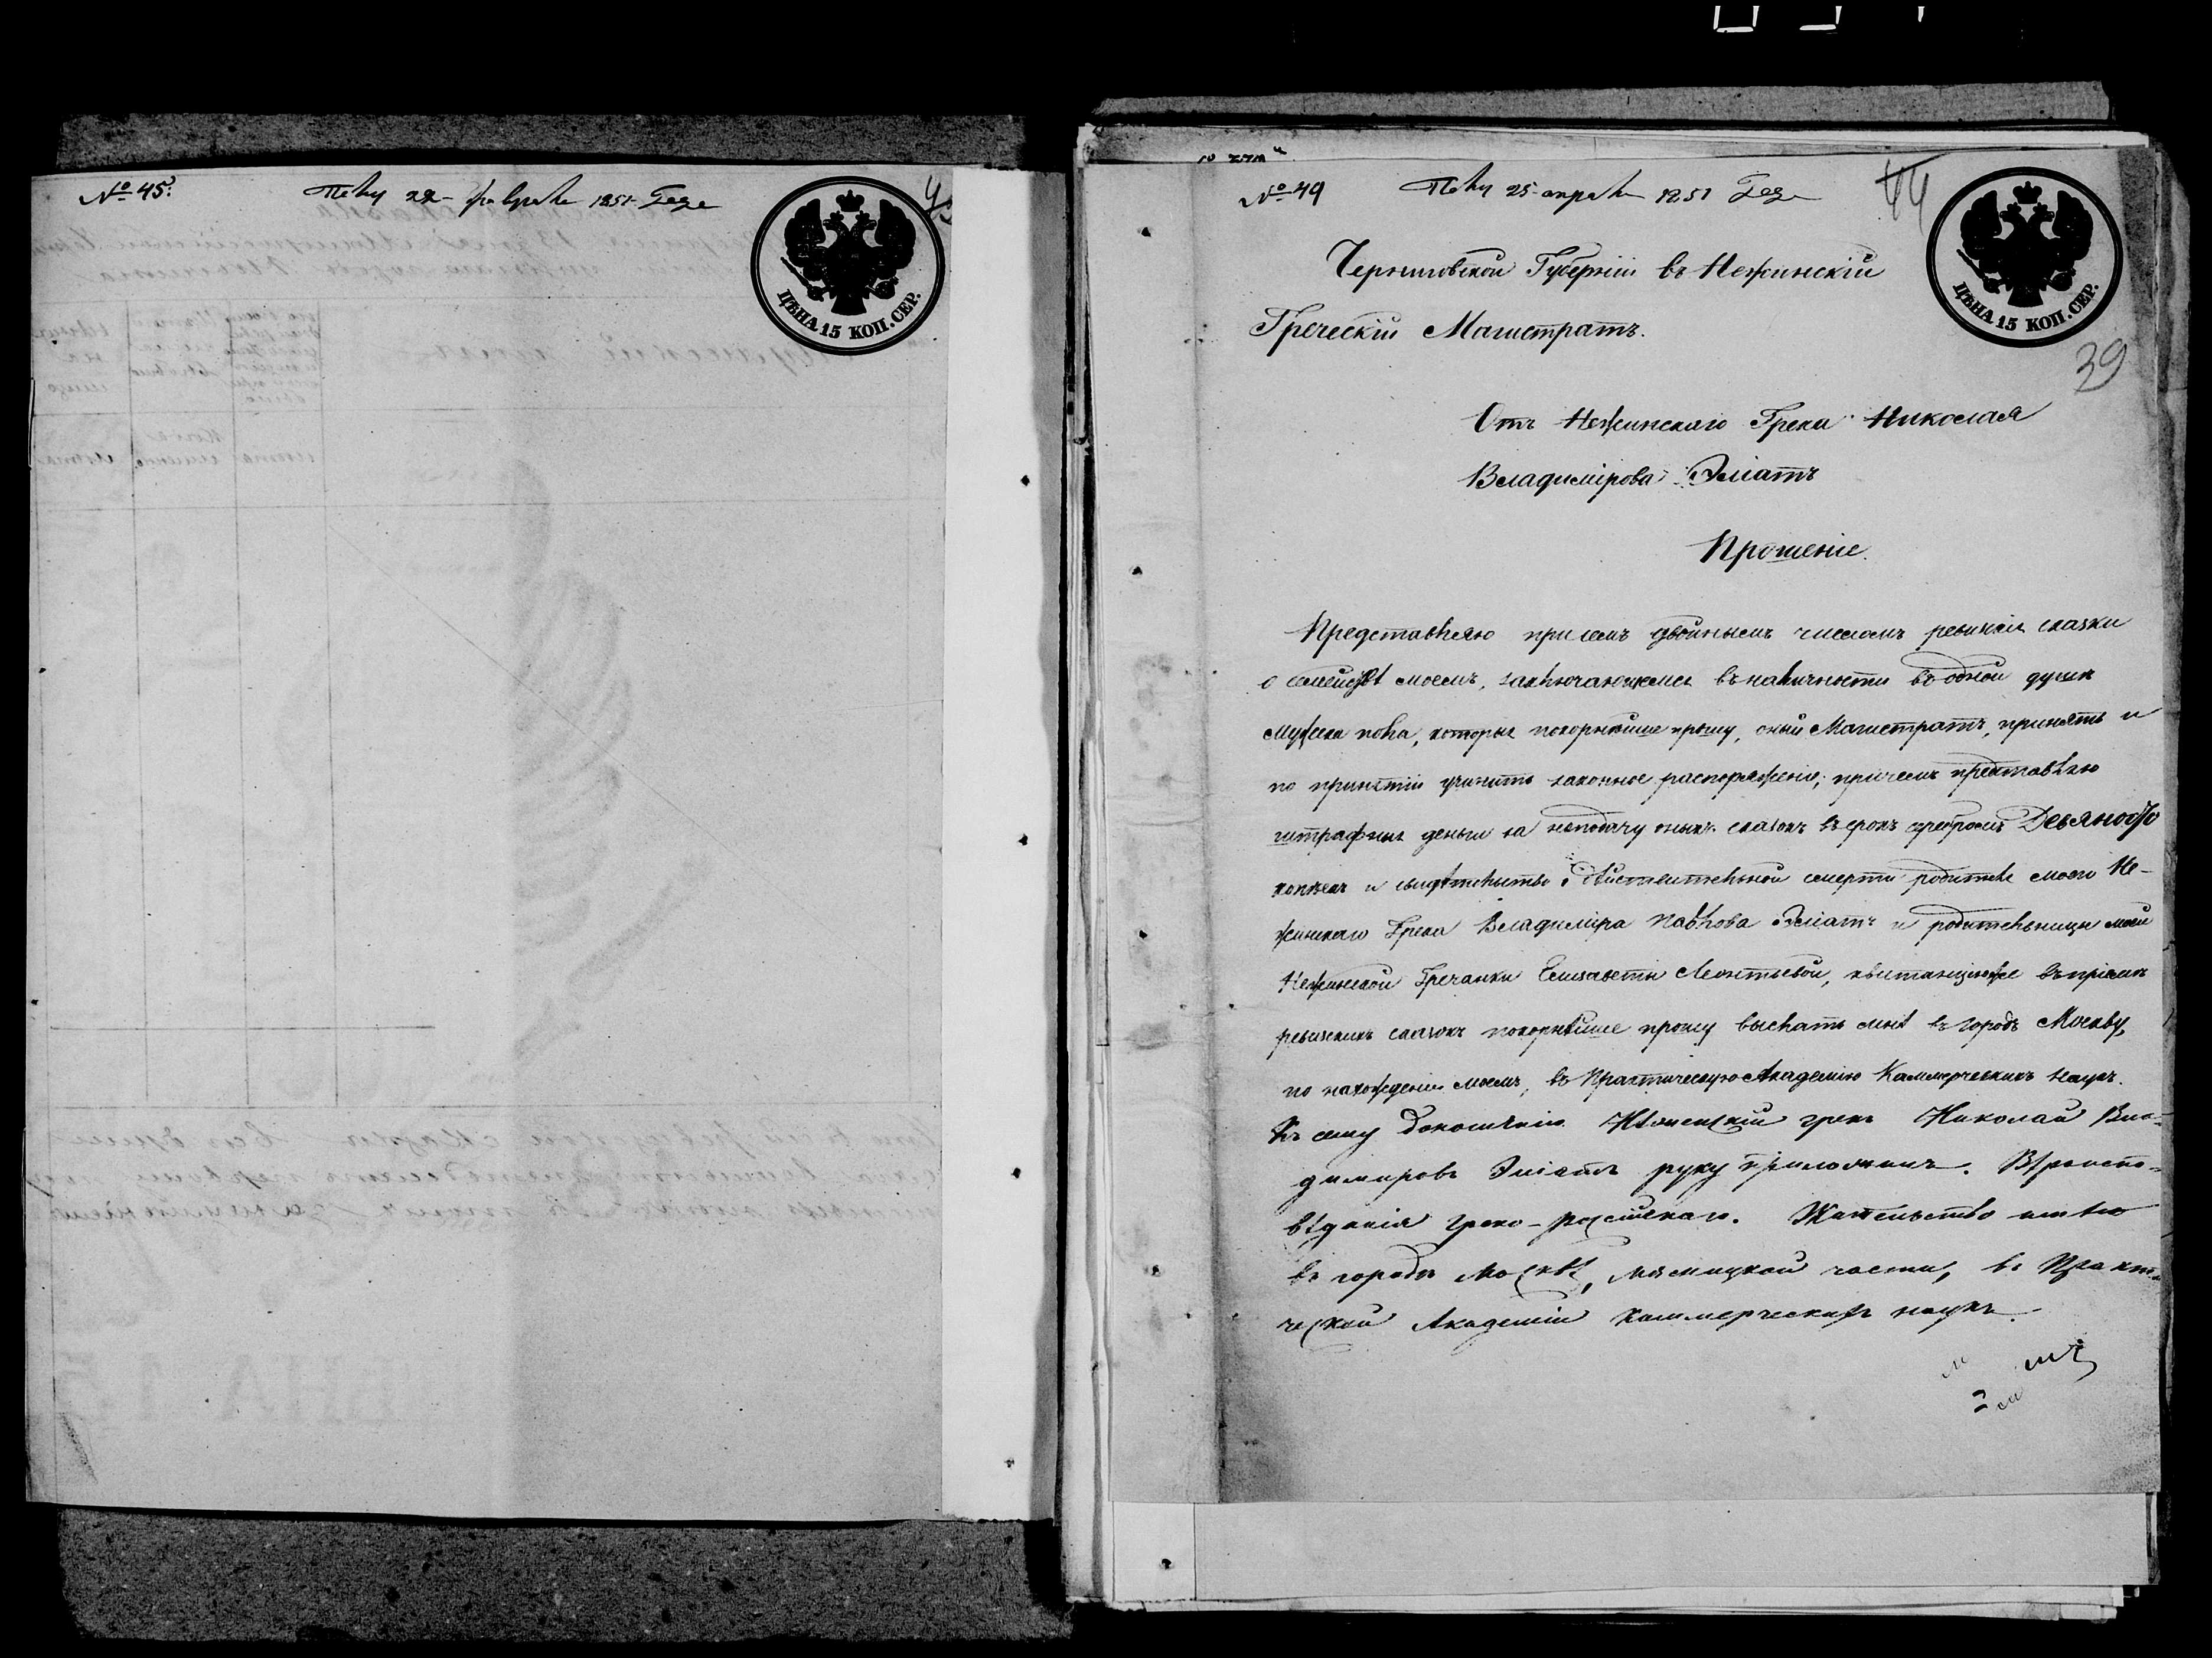 № 45:
22 февраля 1851 Года
ЦѢНА 15 КОП. СЕР.
№ 49
25 апреля 1851 Года
44
ЦѢНА 15 КОП. СЕР.
39
Черниговской Губерніи въ Нежинскій
Греческій Магистратъ.
Отъ Нежинскаго Грека Николая
Владимірова Эміатъ
Прошеніе.
Представляю при семъ двойнымъ числомъ ревизскія сказки
о семействѣ моемъ, заключающемся въ наличности въ одной души
мужска пола, которыя покорнѣйше прошу, оный Магистратъ, принять и
по принятіи учинить законное распоряженіе; причемъ представляю
штрафныя деньги за неподачу оныхъ сказокъ въ срокъ серебромъ Девяносто
копѣекъ и свидѣтельство о дѣйствительной смерти родителя моего Не-
жинскаго Грека Владиміра Павлова Эміатъ и родительницы моей
Нежинской Гречанки Елизаветы Леонтьевой, квитанцію же въ пріемѣ
ревизскихъ сказокъ покорнѣйше прошу выслать мнѣ въ городъ Москву,
по нахожденію моемъ, въ Практическую Академію Каммерческихъ наукъ.
Къ сему доношенію Нѣжинскій грекъ Николай Вла-
димировъ Эміатъ руку приложилъ. Вѣроиспо-
вѣданія греко-россійскаго. Жительство имѣю
въ городѣ Москвѣ, Мясницкой части, въ Практи-
ческой Академіи Каммерческихъ наукъ.